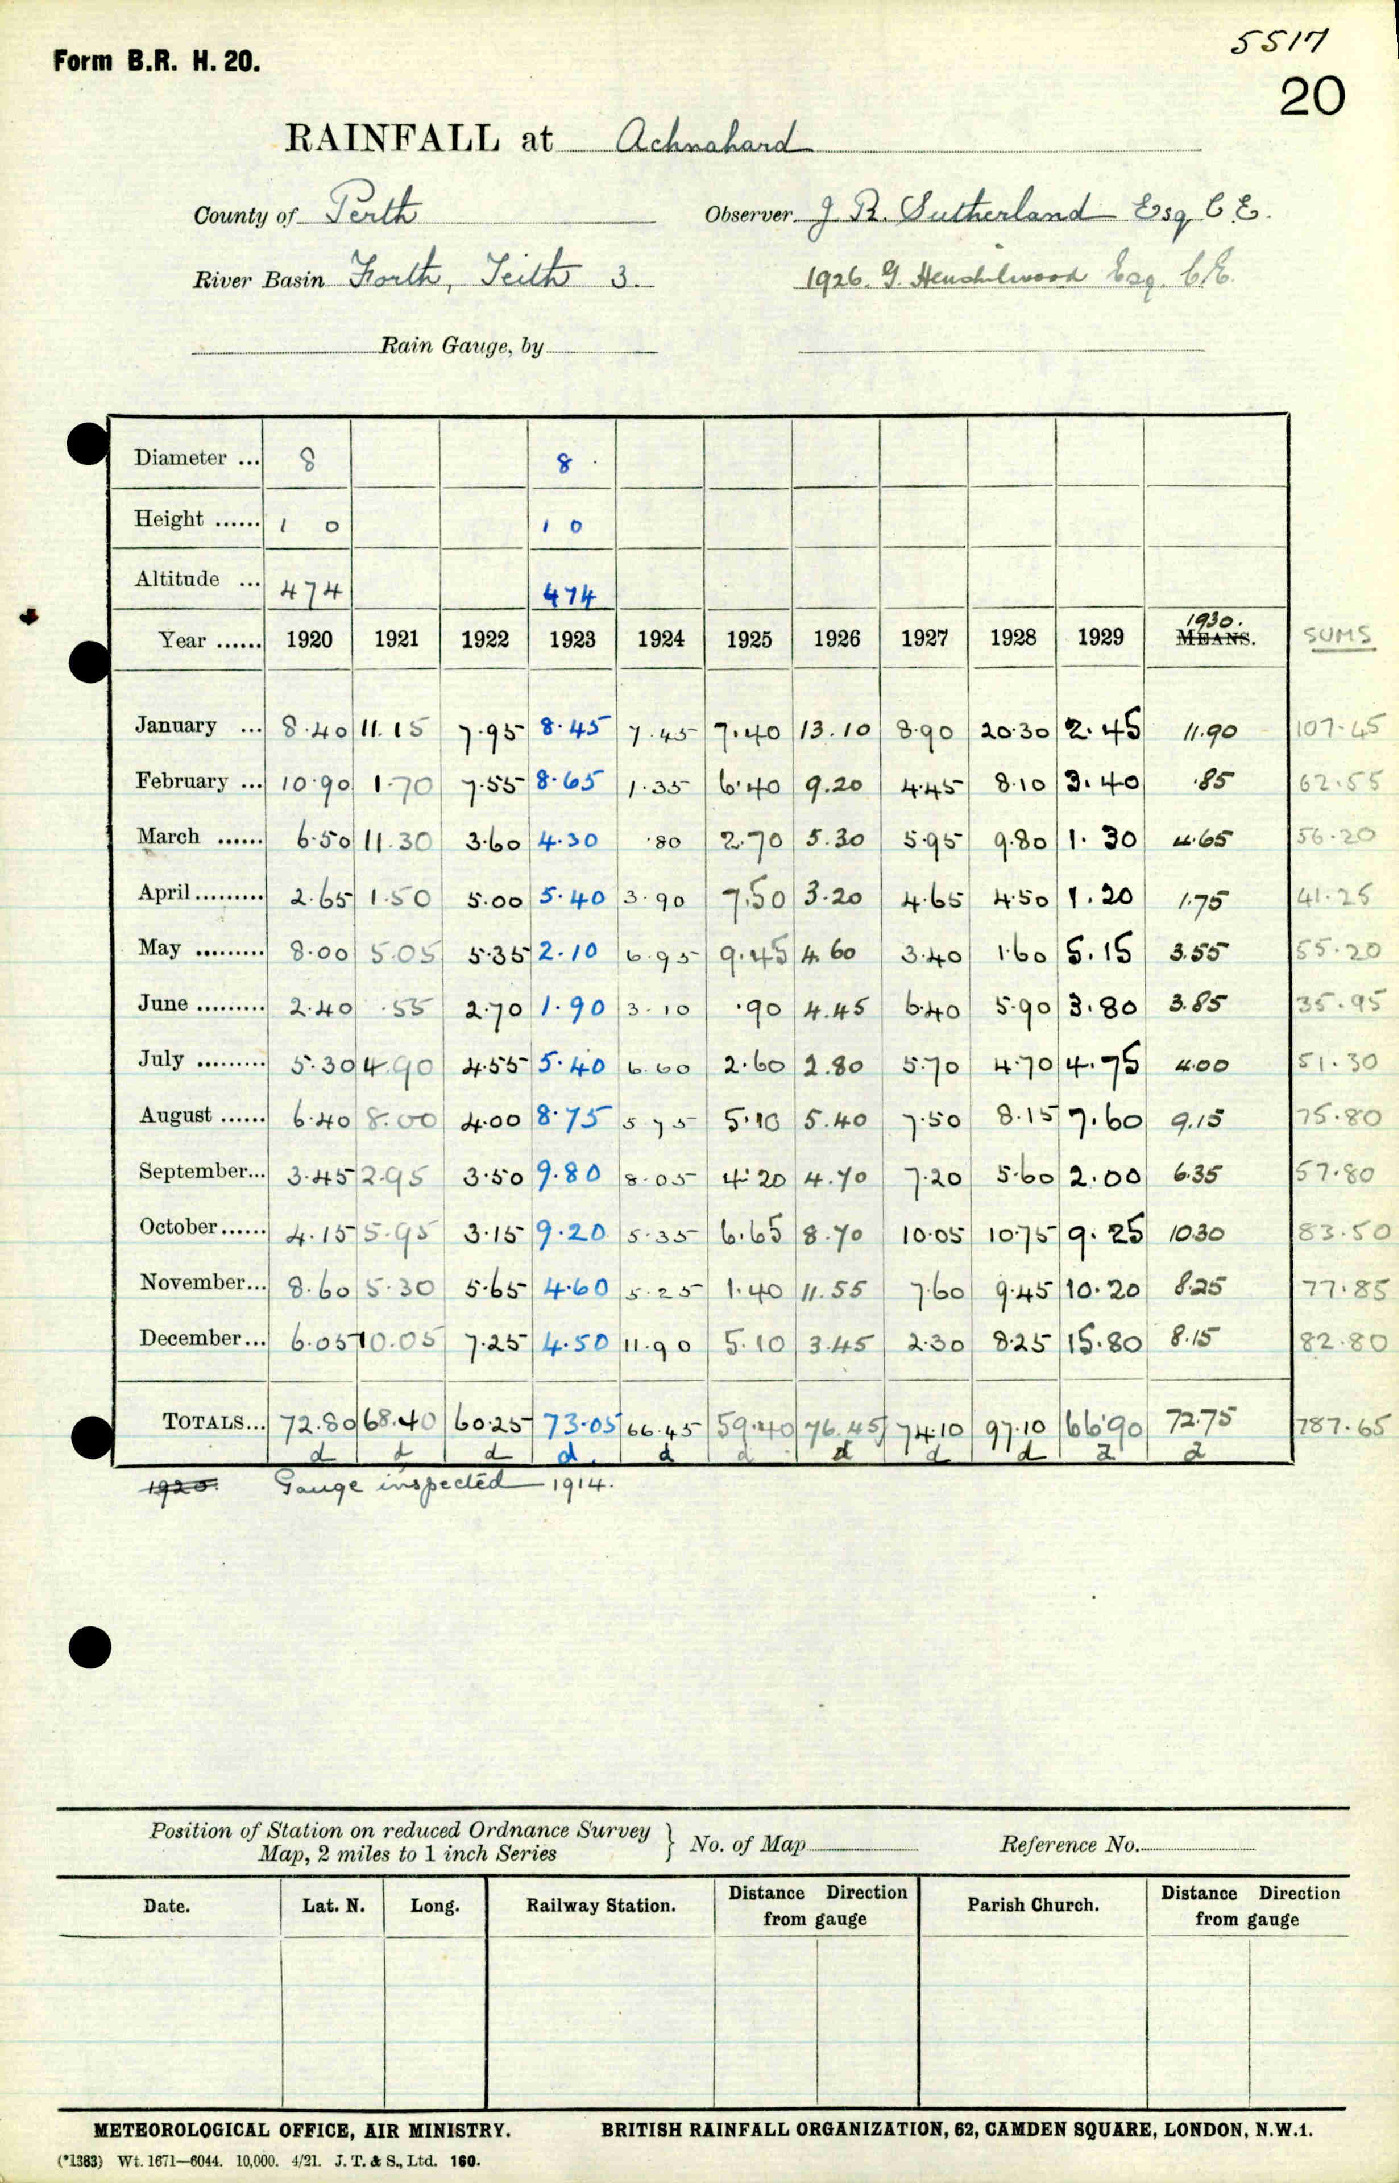 5517
Form B.R. H. 20.
20
RAINFALL at Achnahard
County of Perth Observer J R. Sutherland Esq C.E.
River Basin Forth, Teith 3. 1926. G. Henshilwood Esq. C.E.
Rain Gauge, by
Diameter ... 8 8
Height ...... 1 0 1 0
Altitude ... 474 474
Year ...... 1920 1921 1922 1923 1924 1925 1926 1927 1928 1929 1930. MEANS. SUMS
January ... 8.40 11.15 7.95 8.45 7.45 7.40 13.10 8.90 20.30 2.45 11.90 107.45
February ... 10.90 1.70 7.55 8.65 1.35 6.40 9.20 4.45 8.10 3.40 .85 62.55
March ...... 6.50 11.30 3.60 4.30 .80 2.70 5.30 5.95 9.80 1.30 4.65 56.20
April ......... 2.65 1.50 5.00 5.40 3.90 7.50 3.20 4.65 4.50 1.20 1.75 41.25
May ......... 8.00 5.05 5.35 2.10 6.95 9.45 4.60 3.40 1.60 5.15 3.55 55.20
June ......... 2.40 .55 2.70 1.90 3.10 .90 4.45 6.40 5.90 3.80 3.85 35.95
July ......... 5.30 4.90 4.55 5.40 6.60 2.60 2.80 5.70 4.70 4.75 4.00 51.30
August ...... 6.40 8.00 4.00 8.75 5 75 5.10 5.40 7.50 8.15 7.60 9.15 75.80
September... 3.45 2.95 3.50 9.80 8.05 4.20 4.70 7.20 5.60 2.00 6.35 57.80
October...... 4.15 5.95 3.15 9.20 5.35 6.65 8.70 10.05 10.75 9.25 10.30 83.50
November... 8.60 5.30 5.65 4.60 5.25 1.40 11.55 7.60 9.45 10.20 8.25 77.85
December... 6.05 10.05 7.25 4.50 11.90 5.10 3.45 2.30 8.25 15.80 8.15 82.80
TOTALS... 72.80 68.40 60.25 73.05 66.45 59.40 76.45 74.10 97.10 66.90 72.75 787.65
d d d d. d d d d d d d
1925. Gauge inspected 1914.
Position of Station on reduced Ordnance Survey
Map, 2 miles to 1 inch Series } No. of Map Reference No.
Date. Lat. N. Long. Railway Station. Distance Direction from gauge Parish Church. Distance Direction from gauge
METEOROLOGICAL OFFICE, AIR MINISTRY. BRITISH RAINFALL ORGANIZATION, 62, CAMDEN SQUARE, LONDON, N.W.1.
(*1383) Wt. 1671—6044. 10,000. 4/21. J. T. & S., Ltd. 160.